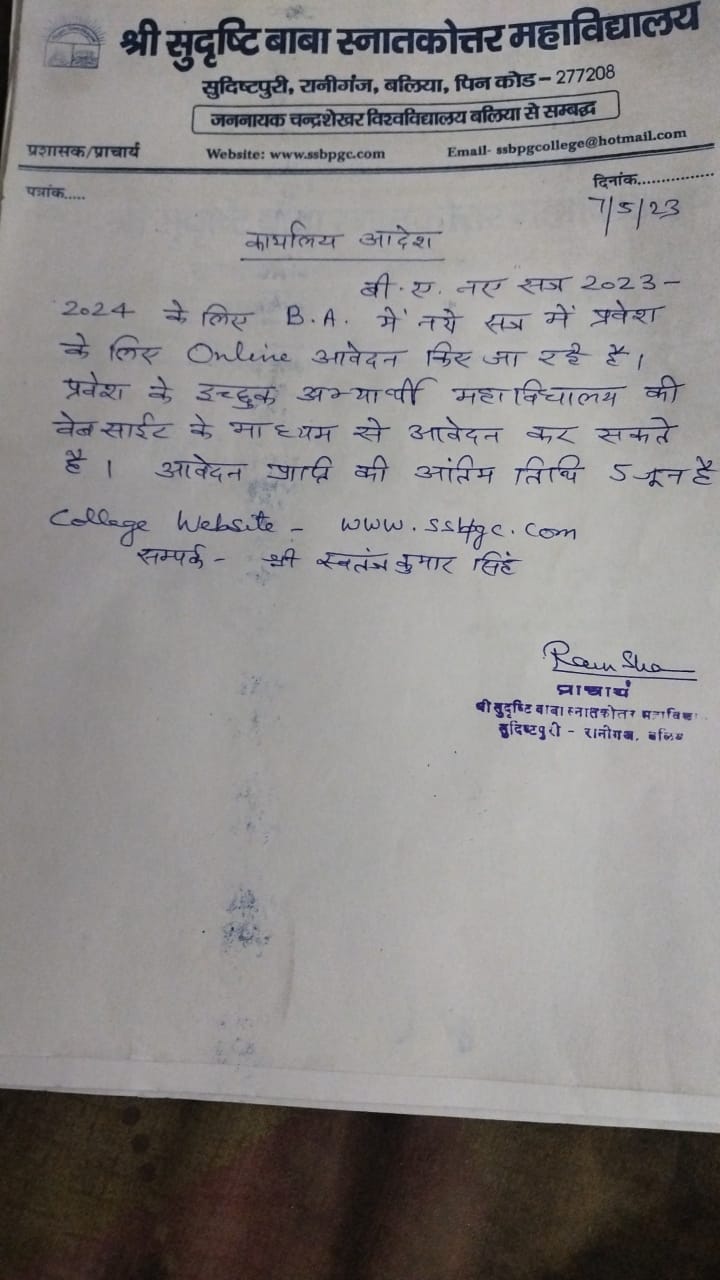 श्री सुदृष्टि बाबा स्नातकोत्तर महाविद्यालय
सुदिष्टपुरी, रानीगंज, बलिया, पिन कोड – 277208
जननायक चन्द्रशेखर विश्वविद्यालय बलिया से सम्बद्ध
प्रशासक/प्राचार्य Website: www.ssbpgc.com Email- ssbpgcollege@hotmail.com
पत्रांक..... दिनांक...............
7/5/23
कार्यालय आदेश
बी.ए. नए सत्र 2023-
2024 के लिए B.A. में नये सत्र में प्रवेश
के लिए Online आवेदन किए जा रहे है।
प्रवेश के इच्छुक अभ्यार्थी महाविद्यालय की
वेबसाईट के माध्यम से आवेदन कर सकते
है। आवेदन प्राप्ति की अंतिम तिथि 5 जून है
College Website - www.ssbpgc.com
सम्पर्क - श्री स्वतंत्र कुमार सिंह
प्राचार्य
श्री सुदृष्टि बाबा स्नातकोतर
सुदिष्टपुरी - रानीगंज, बलिया